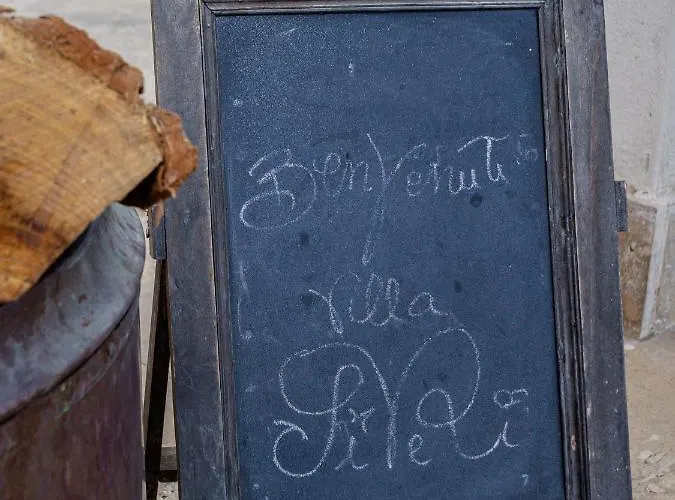 Benvenuti in
Villa
SiVeLi